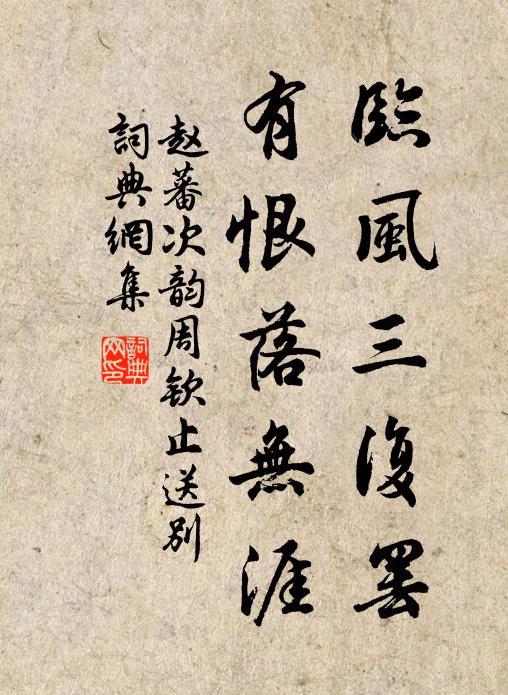 臨風三復罢
有恨落無涯
赵蕃次韵周钦止送别
詞典網集
詞典网印